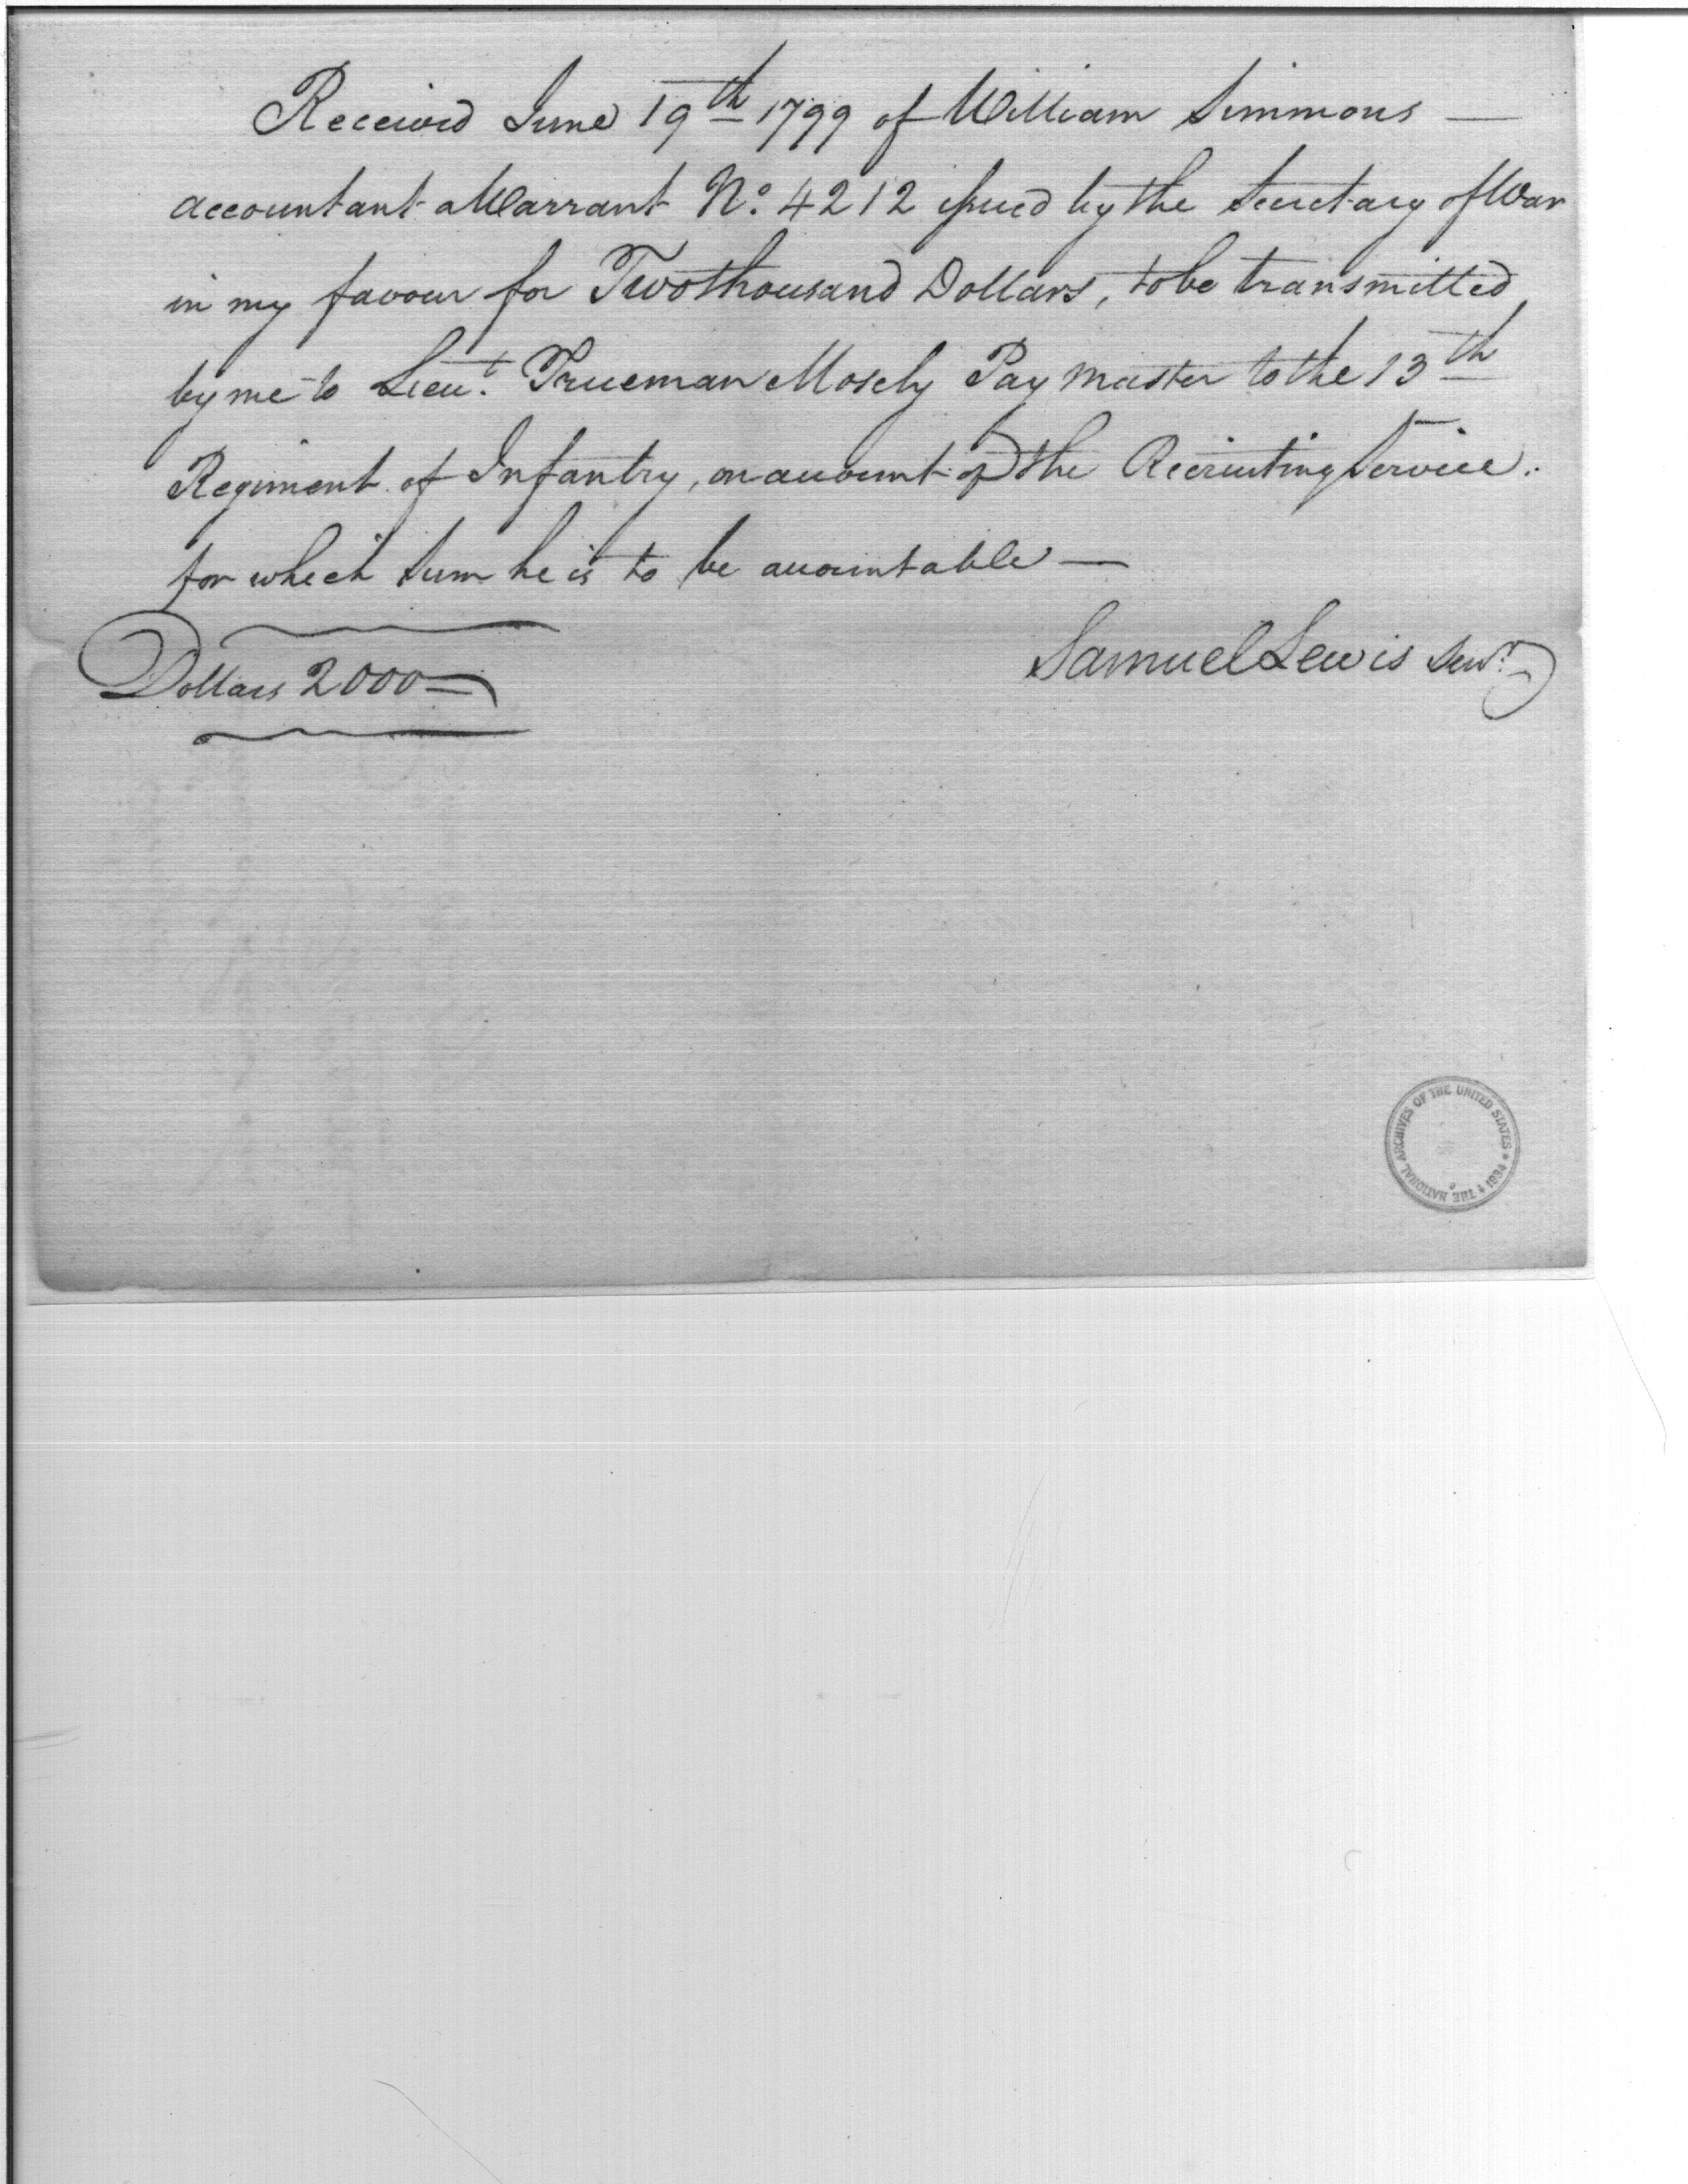 Received June 19th 1799 of William Simmons —
accountant a Warrant No. 4212 issued by the Secretary of War
in my favour for Two thousand Dollars, to be transmitted
by me to Lieut. Trueman Mosely Pay master to the 13th
Regiment of Infantry, on account of the Recruiting Service.
for which Sum he is to be accountable —
Samuel Lewis Senr.
Dollars 2000—
THE NATIONAL ARCHIVES OF THE UNITED STATES * 1934 *